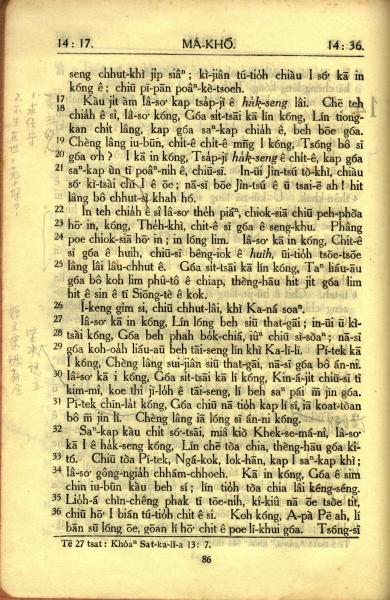 14: 17. MÁ-KHÓ. 14: 36.
seng chhut-khì ji̍p siâⁿ; kì-jiân tú-tio̍h chiàu I só͘ kā in
kóng ê; chiū pī-pān poâⁿ-kè-tsoeh.
17 Kàu ji̍t àm Iâ-so͘ kap tsa̍p-jī ê ha̍k-seng lâi. Chē teh
18 chia̍h ê sî Iâ-so͘ kóng, Góa si̍t-tsāi kā lín kóng, Lín tiong-
kan chi̍t lâng, kap góa saⁿ-kap chia̍h ê, beh bōe góa.
19 Chèng lâng iu-būn, chi̍t-ê chi̍t-ê mn̄g I kóng, Tsóng bô sī
20 góa ơh? I kā in kóng, Tsa̍p-jī ha̍k-seng ê chi̍t-ê, kap góa
21 saⁿ-kap ùn tī poâⁿ-nih ê, chiū-sī. In-ūi Jîn-tsú tò-khì, chiàu
só͘ kì-tsài chí I ê ōe; nā-sī bōe Jîn-tsú ê û tsai-ē ah! hit
lâng bô chhut-sì khah hó.
22 In teh chia̍h ê sî Iâ-so͘ the̍h piáⁿ, chiok-siā chiū peh-phòa
23 hō͘ in, kóng, The̍h-khì, chit-ê sī góa ê seng-khu. Phâng
24 poe chiok-siā hō͘ in; in lóng lim. Iâ-so͘ kā in kóng, Chit-ê
25 sī góa ê huih, chiū-sī bēng-iok ê huih, ūi-tio̍h tsōe-tsōe
lâng lâi lâu-chhut ê. Góa si̍t-tsāi kā lín kóng, Taⁿ liáu-āu
góa bô koh lim phû-tô ê chiap, thèng-hāu hit ji̍t góa lim
hit ê sin ê tī Siōng-tè ê kok.
26 I-keng gîm si, chiū chhut-lâi, khì Ka-ná soaⁿ.
27 Iâ-so͘ kā in kóng, Lín lóng beh siū that-gāi; in-ūi ū kì-
28 tsài kóng, Góa beh phah bo̍k-chiá, iûⁿ chiū sì-sòaⁿ; nā-sī
29 góa koh-oa̍h liáu-āu beh tāi-seng lín khì Ka-lī-lī. Pí-tek kā
I kóng, Chèng lâng sui-jiân siū that-gāi, nā-sī góa bô án-ni.
30 Iâ-so͘ kā i kóng, Góa si̍t-tsāi kā lí kóng, Kin-á-ji̍t chiū-sī tī
kim-mî, koe thî jī-lo̍h ê tāi-seng, lí beh saⁿ pái m̄ jīn góa.
31 Pí-tek chīn-la̍t kóng, Góa chiū nā tio̍h kap lí sí, iā koat-tòan
bô m̄ jīn lí. Chèng lâng iā lóng sī án-ni kóng.
32 Saⁿ-kap kàu chi̍t só͘-tsāi, miâ kiò Khek-se-má-nî, Iâ-so͘
kā I ê ha̍k-seng kóng, Lín chē tòa chia, thèng-hāu góa kî-
33 tó. Chiū tòa Pí-tek, Ngá-kok, Iok-hān, kap I saⁿ-kap khì;
34 Iâ-so͘ gông-ngia̍h chhám-chhoeh. Kā in kóng, Góa ê sim
chin iu-būn kàu beh sí; lín tio̍h tòa chia lâi kéng-séng.
35 Lio̍h-á chìn-chêng phak tī tōe-nih, kî-kiû nā ōe tsòe tit,
36 chiū hō͘ I bián tú-tio̍h chit ê sî. Koh kóng, A-pà Pē ah, lí
bān sū lóng ōe, goān lí hō͘ chit ê poe lī-khui góa. Tsóng-sī
Tē 27 tsat: Khòaⁿ Sat-ka-lī-a 13: 7.
86